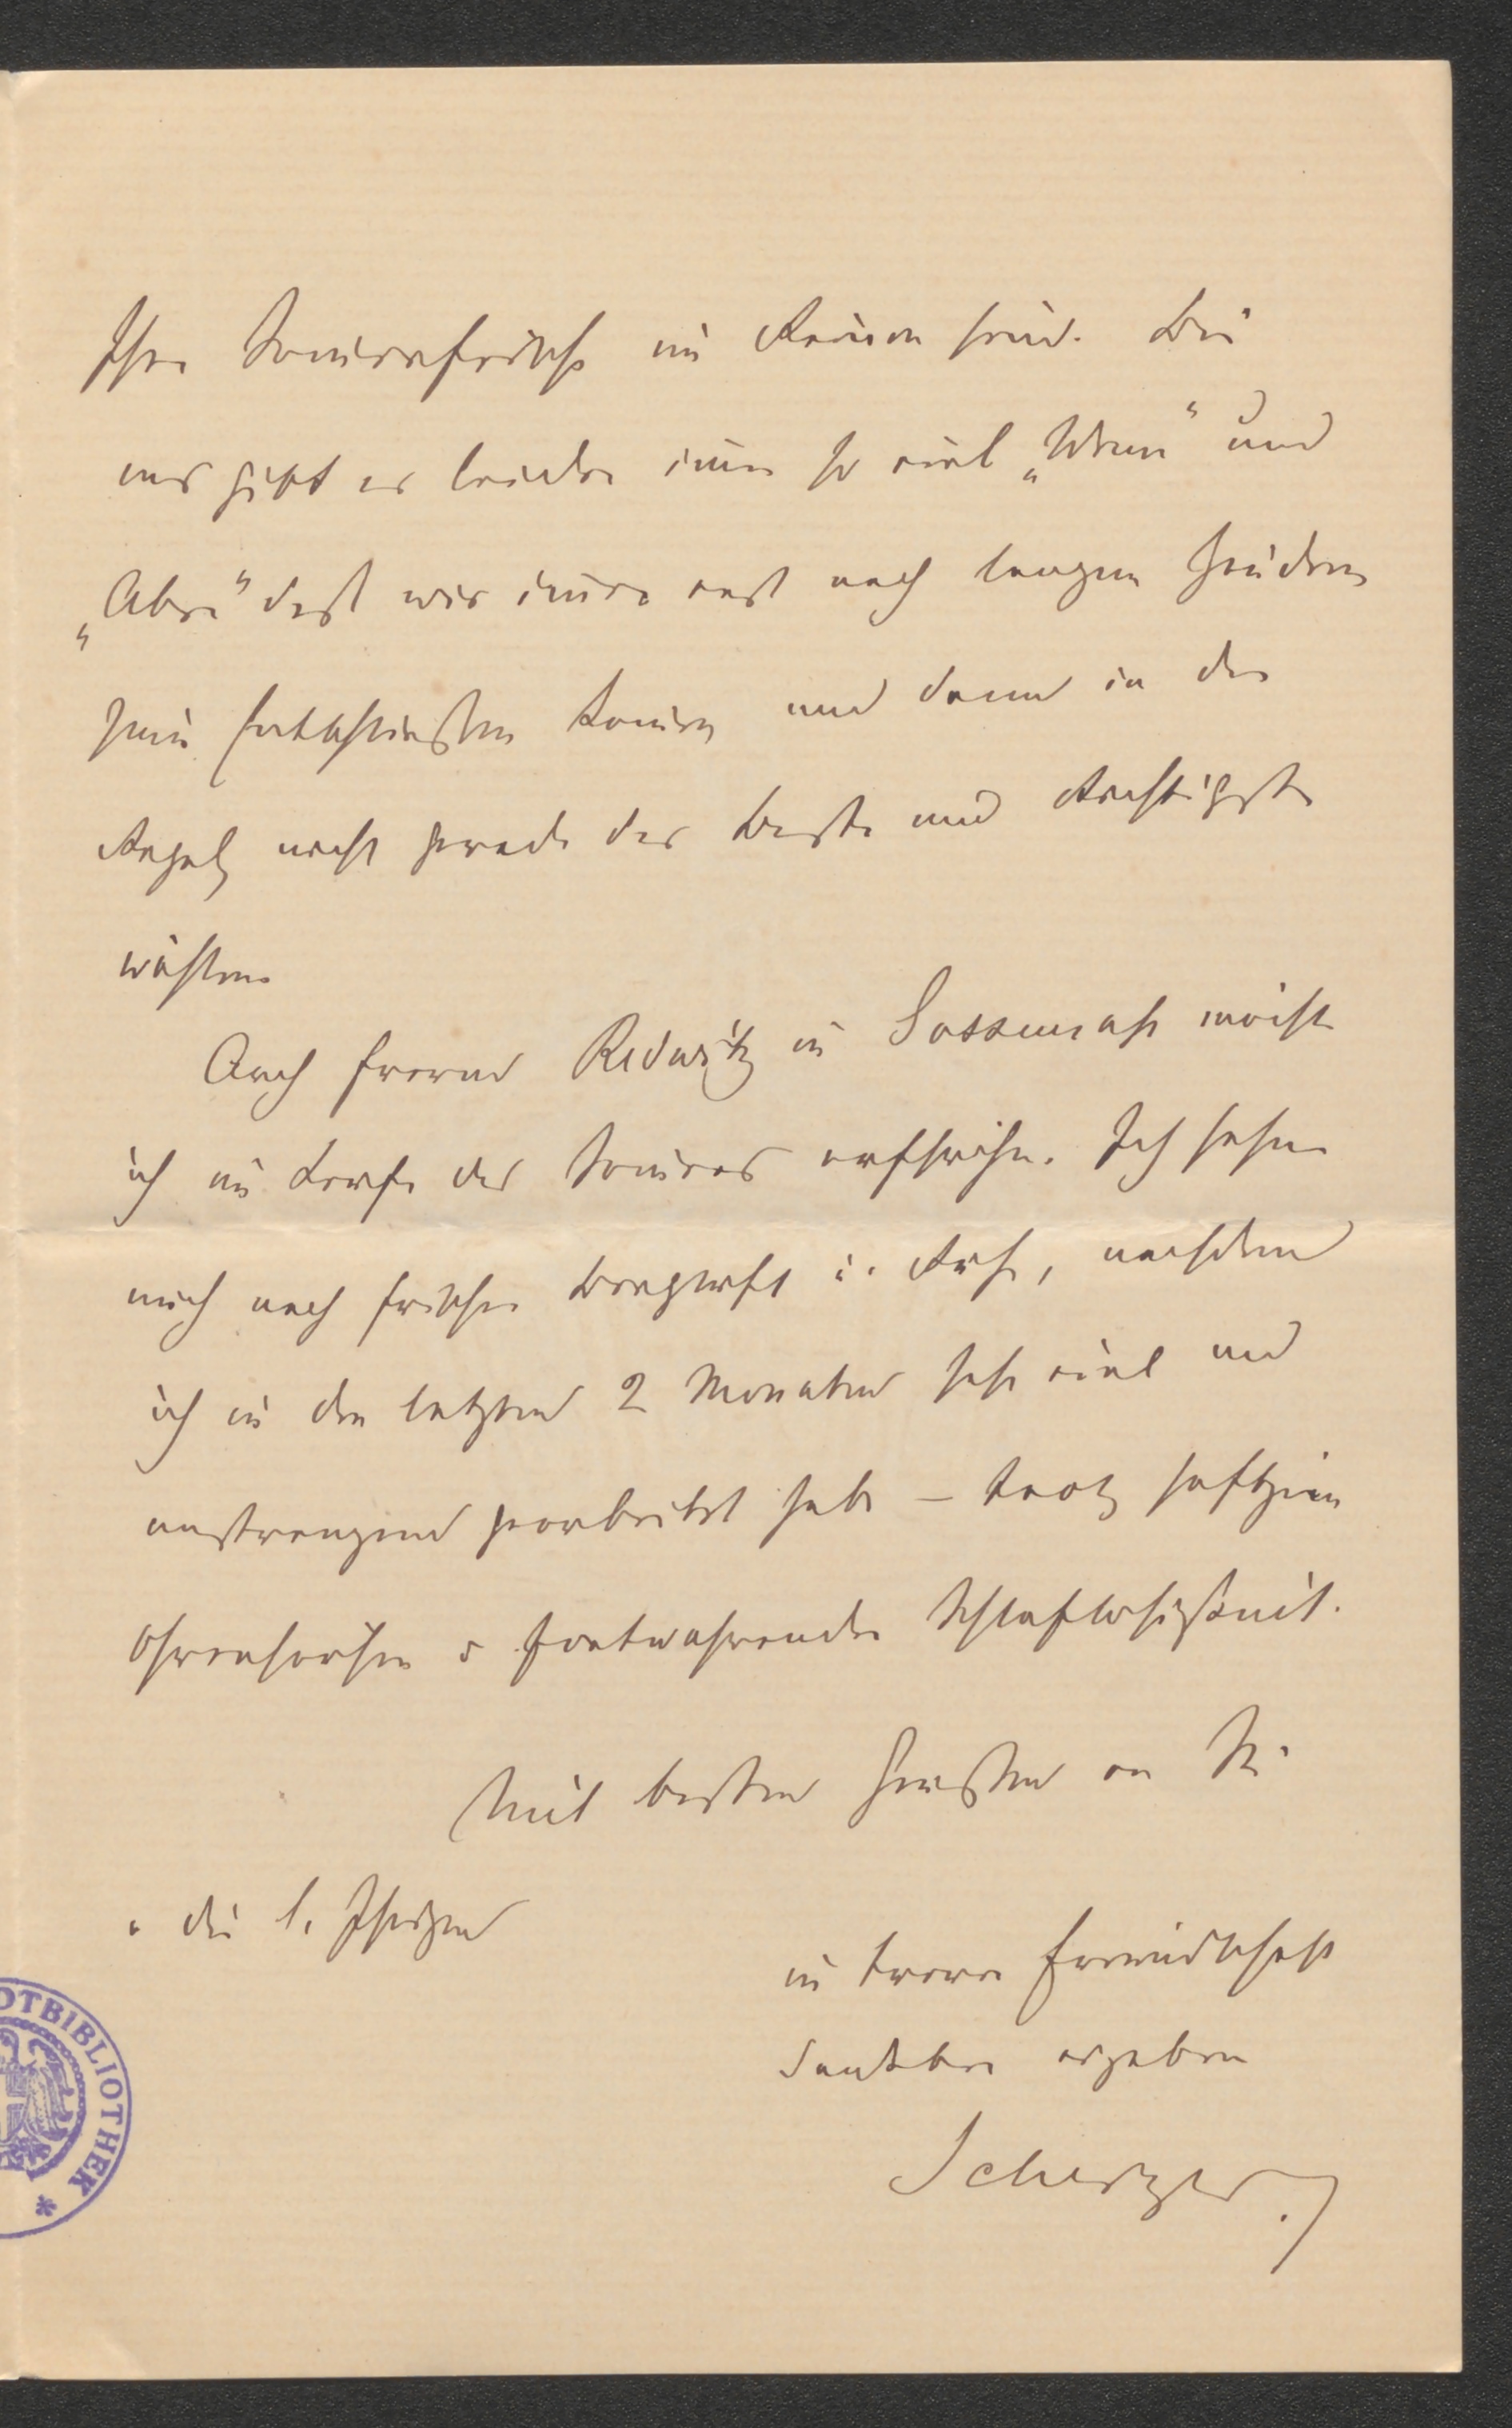 Ihrer Sommerfrische im Reinen sind. Bei
uns gibt es leider immer so viel „Wenn" und
„Aber" daß wir immer erst nach langem Hin
zum Entschließen kommen und dann in der
Regel nicht gerade das Beste und Richtigste
wählen.
Auch Freund Redwitz in Sossenrast möchte
ich im Laufe des Sommers aufsuchen. Ich sehne
mich nach frischer Bergluft u. Ruhe, nachdem
ich in den letzten 2 Monaten sehr viel und
anstrengend gearbeitet habe – trotz heftigem
Ohrensausen u fortwährender Schlaflosigkeit.
Mit besten Grüßen an Sie
u die l. Ihrigen
in treuer Freundschaft
dankbar ergeben
Scherzer.
OTBIBLIOTHEK *